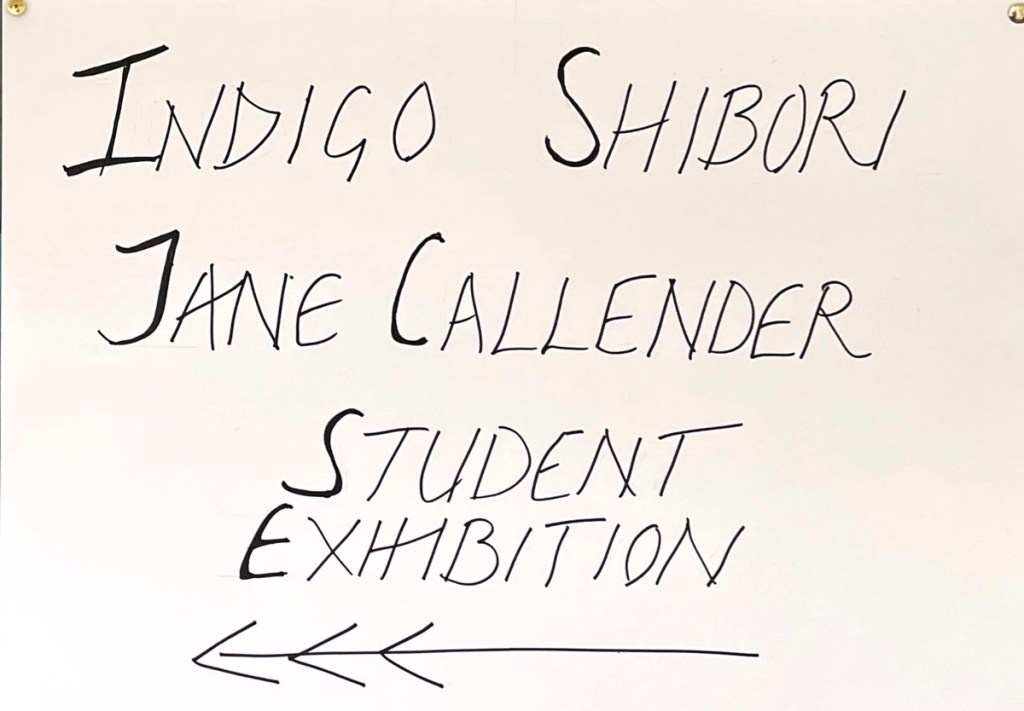 INDIGO SHIBORI
JANE CALLENDER
STUDENT
EXHIBITION